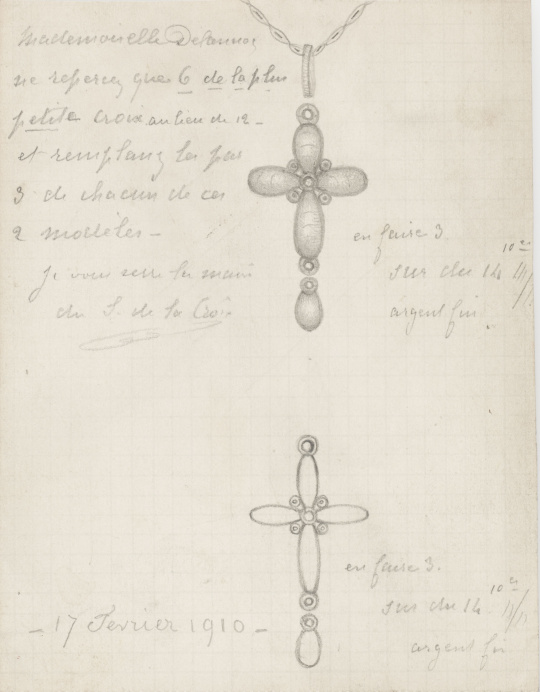 Mademoiselle
ne reperçez que 6 de la plus
petite croix au lieu de 12 -
et remplaney les par
3 de chacun de ces
2 modèles -
je vous serre la main
du S. de la Croix
en faire 3.
10 es
sur du 14
argent fin
en faire 3.
10 es
sur du 14
argent fin
- 17 Fevrier 1910 -